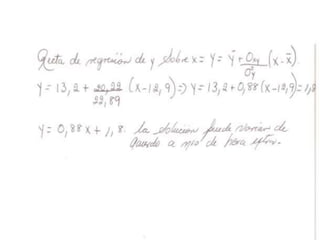 Recta de regresión de y sobre x = y = ȳ + σxy/σ²y (x - x̄).
y = 13,2 + 20,22/22,89 (x-12,9) => y = 13,2 + 0,88 (x-12,9) = 1,8
y = 0,88x + 1,8. la solución puede variar de
acuerdo a de hora extra.